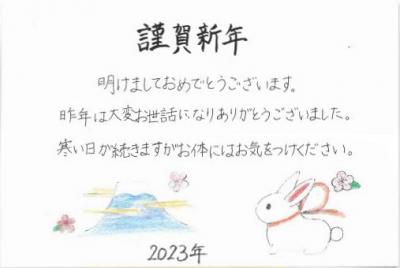 謹賀新年
明けましておめでとうございます。
昨年は大変お世話になりありがとうございました。
寒い日が続きますがお体にはお気をつけください。
2023年